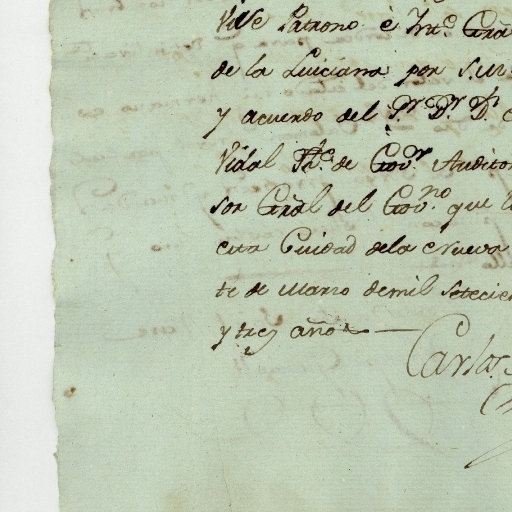 Vice Patrono è Int.e Gral
de la Luiciana por S.M.
y acuerdo del S.r D.r D.n
Vidal Th.e de Gov.r Auditor
sor Gral del Gov.no que l
cita Ciudad dela Nueva
te de Marzo demil setecie
y tres años
Carlos